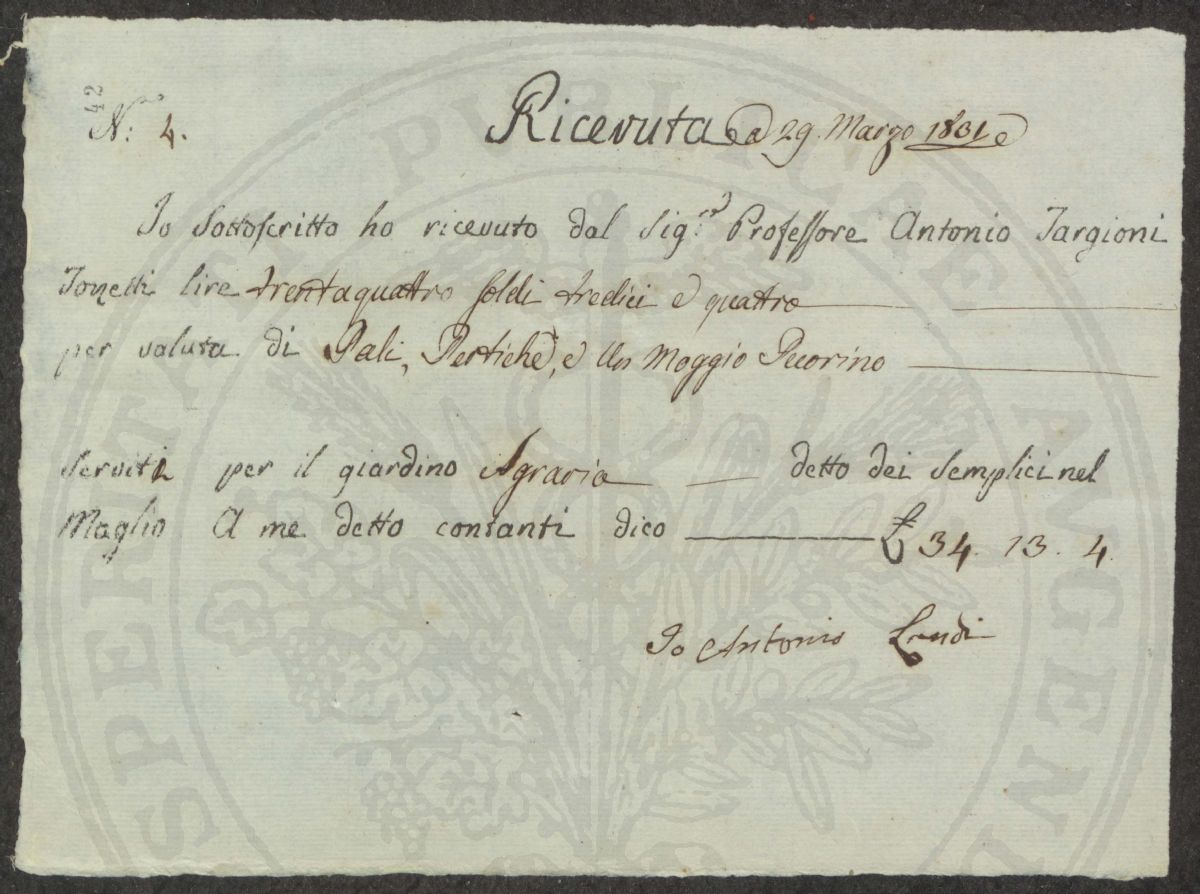 42
N.° 4.
Ricevuta a 29. Marzo 1831
Io Sottoscritto ho ricevuto dal Sig.re Professore Antonio Targioni
Tozetti lire trentaquattro soldi tredici e quattro
per valuta di Pali, Pertiche, e Un Moggio Pecorino
Serviti per il giardino Agrario detto dei Semplici nel
Maglio A me detto contanti dico £ 34. 13. 4.
Io Antonio Landi
PROSPERITATI PUBLICAE AUGENDAE